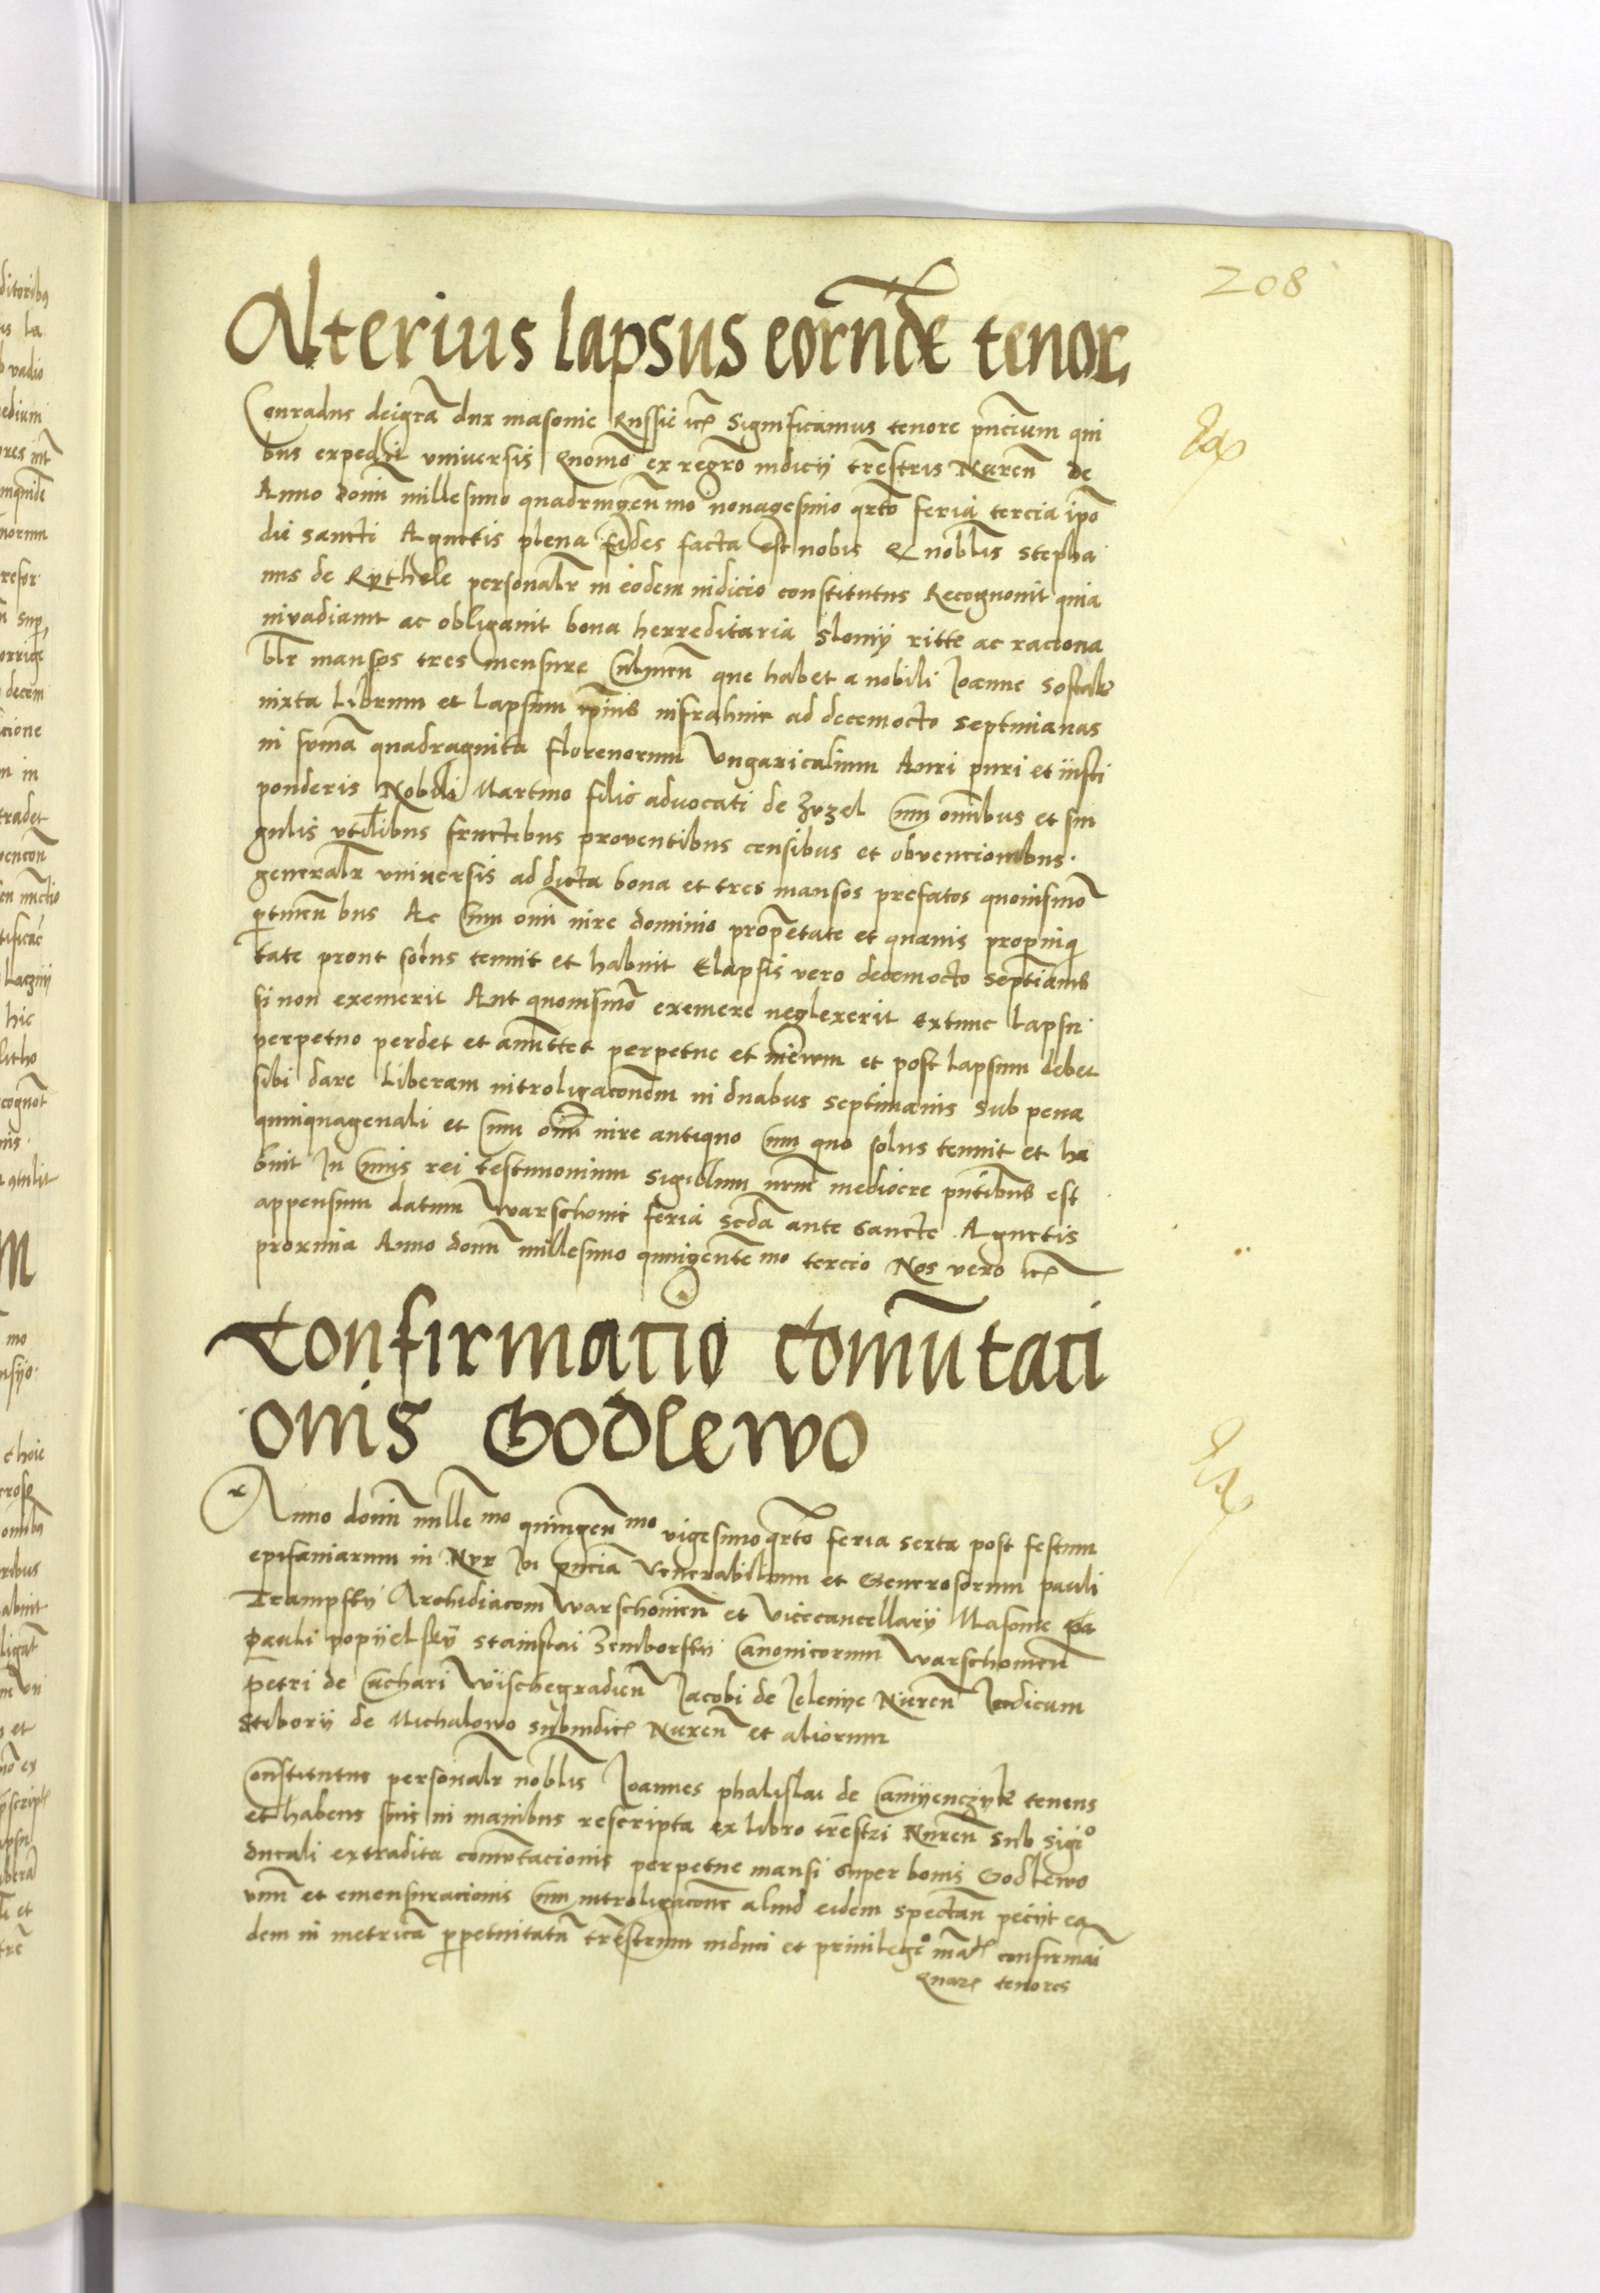 208
Alterius lapsus eorũde tenor
Conradus dei grã dux masouie Russie etc Significamus tenore pñcium qui
bus expedit vniuersis Quomõ ex regro iudicij trrestris Nuren de
Anno domĩ millesimo quadringeñ mo nonagesimo qrto feria tercia ipo
die sancti Agnetis plena fides facta est nobis Qz noblis stepha
nus de Rythele personalr in eodem iudicio constitutus Recognouit quia
inuadiauit ac obligauit bona herreditaria slomÿ ritte ac raciona
blr mansos tres mensure Culmeñ que habet a nobili Joanne
iuxta Librum et Lapsum ad decemocto septimanas
in sumã quadraginta florenorum Vngaricalium Auri puri et iusti
ponderis Nobili Martino filio aduocati de Zuzel Cum omĩbus et sin
gulis vtilibus fructibus prouentibus censibus et obuencionibus
generalr vniuersis ad dicta bona et tres mansos prefatos quouismõ
ptineñ bus Ac Cum omĩ iure dominio propetate et quauis propinq
tate prout solus tenuit et habuit Elapsis vero decemocto septimais
si non exemerit Aut quouismõ exemere neglexerit extunc Lapsu
perpetuo perdet et amittet perpetue et et post Lapsum debet
sibi dare Liberam introligaconem in duabus septimanis sub pena
quinquagenali et Cum omĩ iure antiquo Cum quo solus tenuit et ha
buit In Cuius rei testimonium sigillum nrm mediocre pñtibus est
appensum datum Warschouie feria scda ante sancte Agnetis
proxima Anno domĩ millesimo quingente mo tercio Nos vero etc
Confirmatio Comũtaci
onis Godlewo
Anno domĩ mille mo quingeñ mo vigesimo qrto feria sexta post festum
epifaniarum in Nur In pñcia Venerabilium et Generosorum pauli
Trampskÿ Archidiaconi Warschouieñ et Vicecancellarÿ Masouie
Pauli popÿelskÿ stainslai Zemborskÿ Canonicorum Warschouieñ
Petri de Cachari Wischegradieñ Jacobi de Jelenÿe Nureñ Judicum
Stiborÿ de Michalowo subiudic Nureñ et aliorum
Constitutus personalr noblis Joannes phalislai de Camÿenczyk tenens
et habens suis in manibus rescripta ex libro trrestri Nureñ sub sigo
ducali extradita comutacionis perpetue mansi super bonis Godlewo
vnũ et emensuracionis Cum introligacone aliud eidem spectañ peciit ea
dem in metricã ppetuitatũ trrestrium induci et priuilego confirmari
Quarz tenores